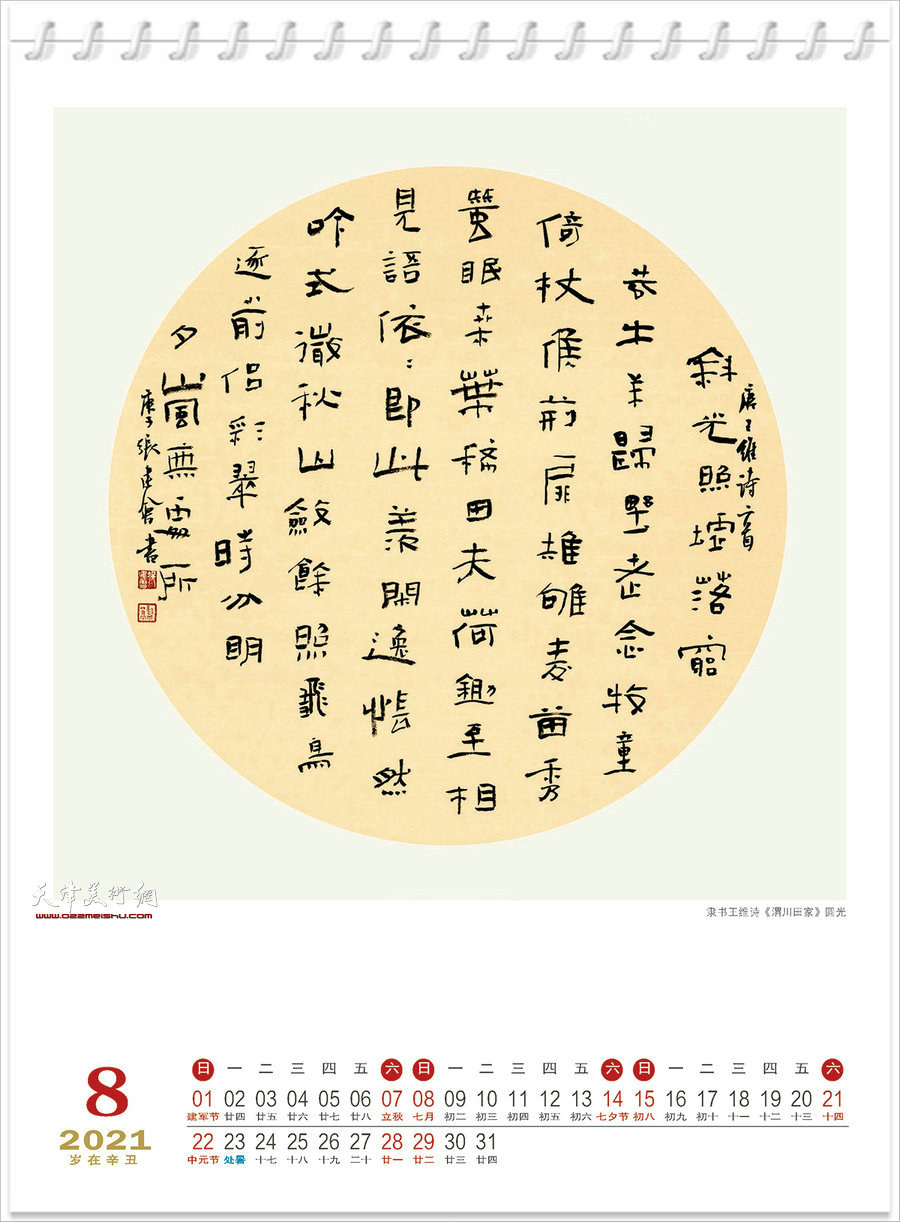 唐王維詩二首
斜光照墟落窮
巷牛羊歸野老念牧童
倚杖候荊扉雉雊麦苗秀
蠶眠桑葉稀田夫荷鋤至相
見語依〻即此羨閑逸悵然
吟式微秋山斂餘照飛鳥
逐前侶彩〻翠時分明
夕嵐無處所
庚子張建會書
天津美術網
www.022meishu.com
隶书王维诗《渭川田家》圆光
8
2021
岁在辛丑
日 一 二 三 四 五 六 日 一 二 三 四 五 六 日 一 二 三 四 五 六
01 02 03 04 05 06 07 08 09 10 11 12 13 14 15 16 17 18 19 20 21
建军节 廿四 廿五 廿六 廿七 廿八 立秋 七月 初二 初三 初四 初五 初六 七夕节 初八 初九 初十 十一 十二 十三 十四
22 23 24 25 26 27 28 29 30 31
中元节 处暑 十七 十八 十九 二十 廿一 廿二 廿三 廿四